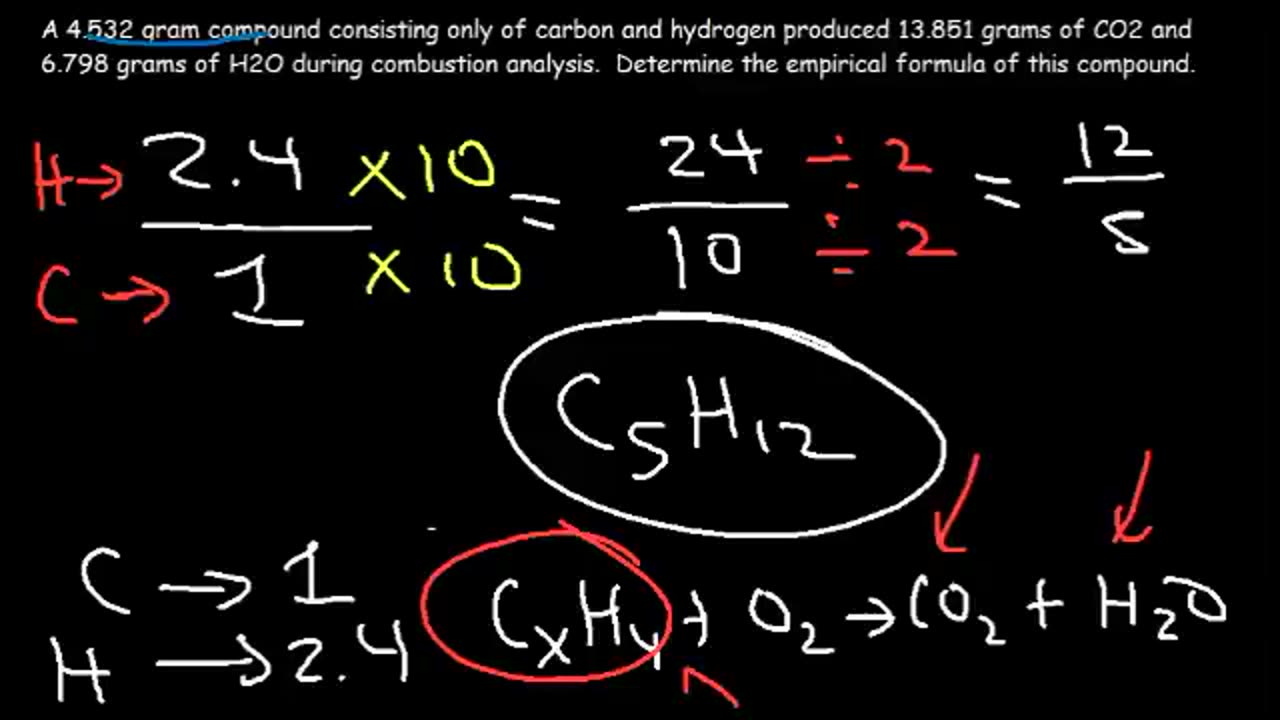 A 4.532 gram compound consisting only of carbon and hydrogen produced 13.851 grams of CO2 and
6.798 grams of H2O during combustion analysis. Determine the empirical formula of this compound.
H → 2.4 × 10 = 24 ÷ 2 = 12
C → 1 × 10 10 ÷ 2 5
C5H12
C → 1
H → 2.4
CxHy + O2 → CO2 + H2O